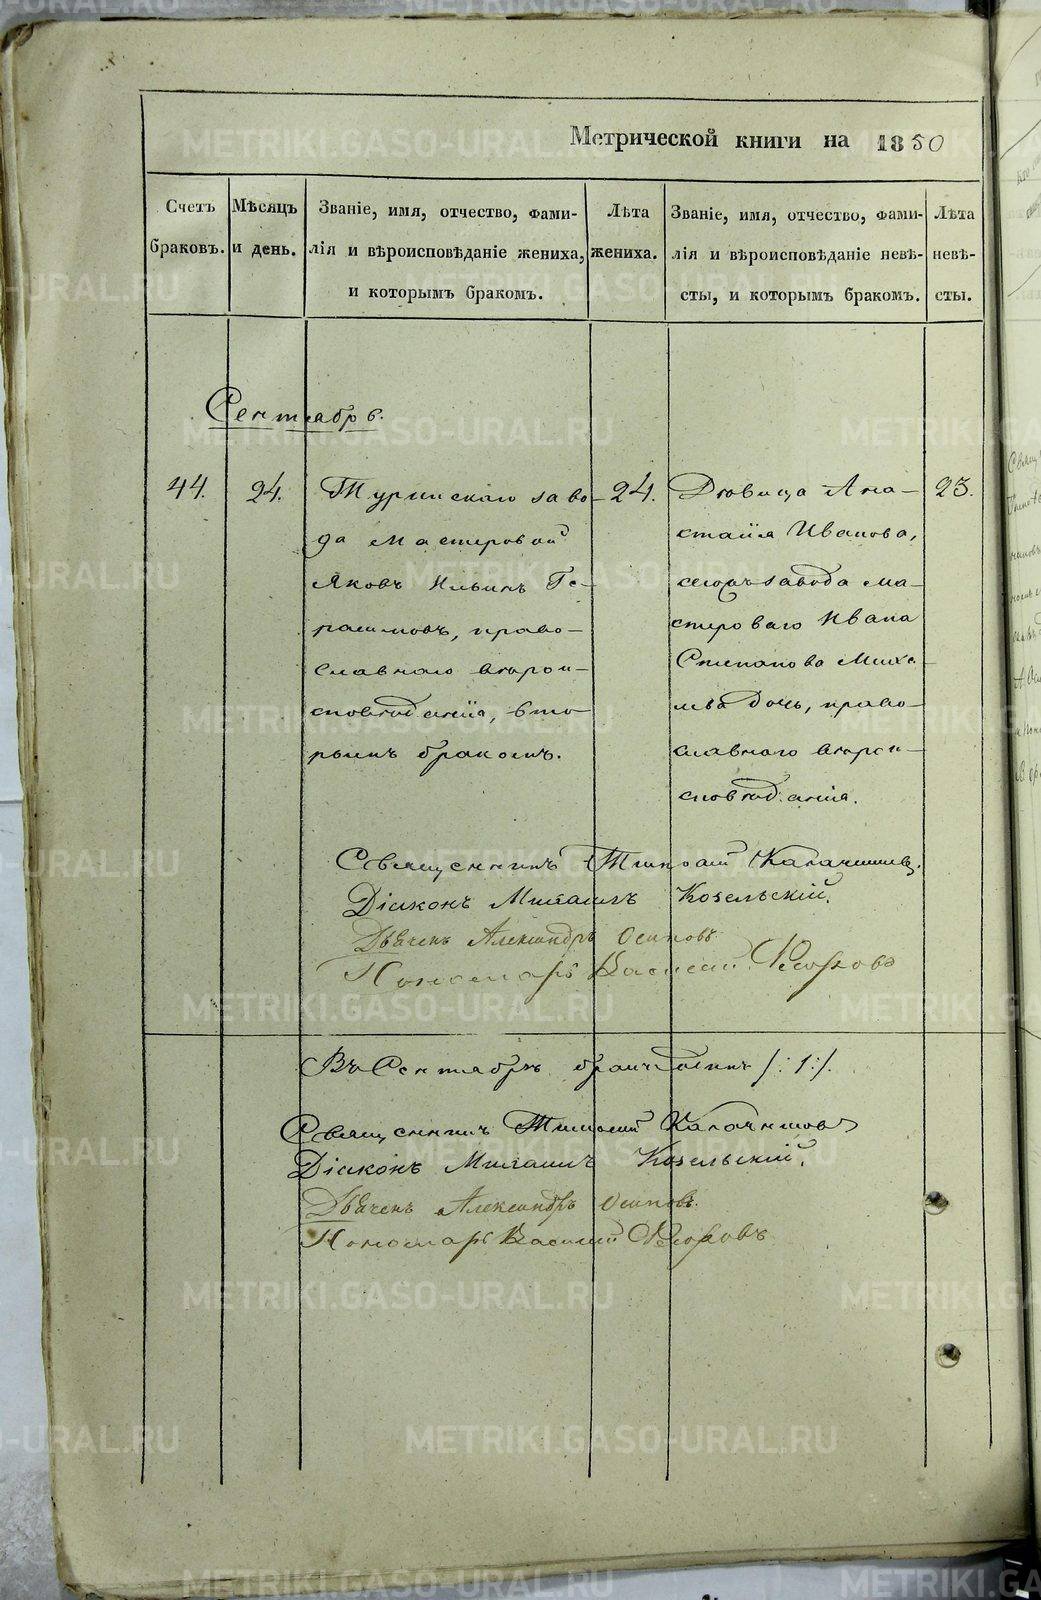 Метрической книги на 1850
Счетъ браковъ.
Мѣсяцъ и день.
Званіе, имя, отчество, фами-
лія и вѣроисповѣданіе жениха,
и которымъ бракомъ.
Лѣта
жениха.
Званіе, имя, отчество, фами-
лія и вѣроисповѣданіе невѣ-
сты, и которымъ бракомъ.
Лѣта
невѣ-
сты.
Сентябрь.
44.
24.
Туринскаго заво-
да мастеровой
Яковъ Ильинъ Ге-
расимовъ, право-
славнаго вѣрои-
сповѣданія, вто-
рымъ бракомъ.
24.
Дѣвица Ана-
стасія Иванова,
завода ма-
стероваго Ивана
Степанова
дочь, право-
славнаго вѣрои-
сповѣданія.
23.
Священникъ Тимофей
Діаконъ Михаилъ Козельскій.
Дьячекъ Александръ Осиповъ
Пономарь Василій Ѳедоровъ
Въ Сентябрѣ /:1:/.
Священникъ Тимофей
Діаконъ Михаилъ Козельскій.
Дьячекъ Александръ Осиповъ.
Пономарь Василій Ѳедоровъ
METRIKI.GASO-URAL.RU